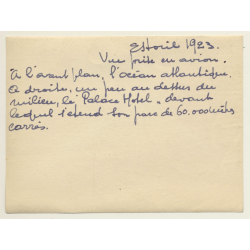 Estoril 1923.
Vue prise en avion.
À l'avant plan, l'océan atlantique.
A droite, un peu au dessus du
milieu, le Palace Hotel, devant
lequel s'étend son parc de 60.000 mètres
carrés.